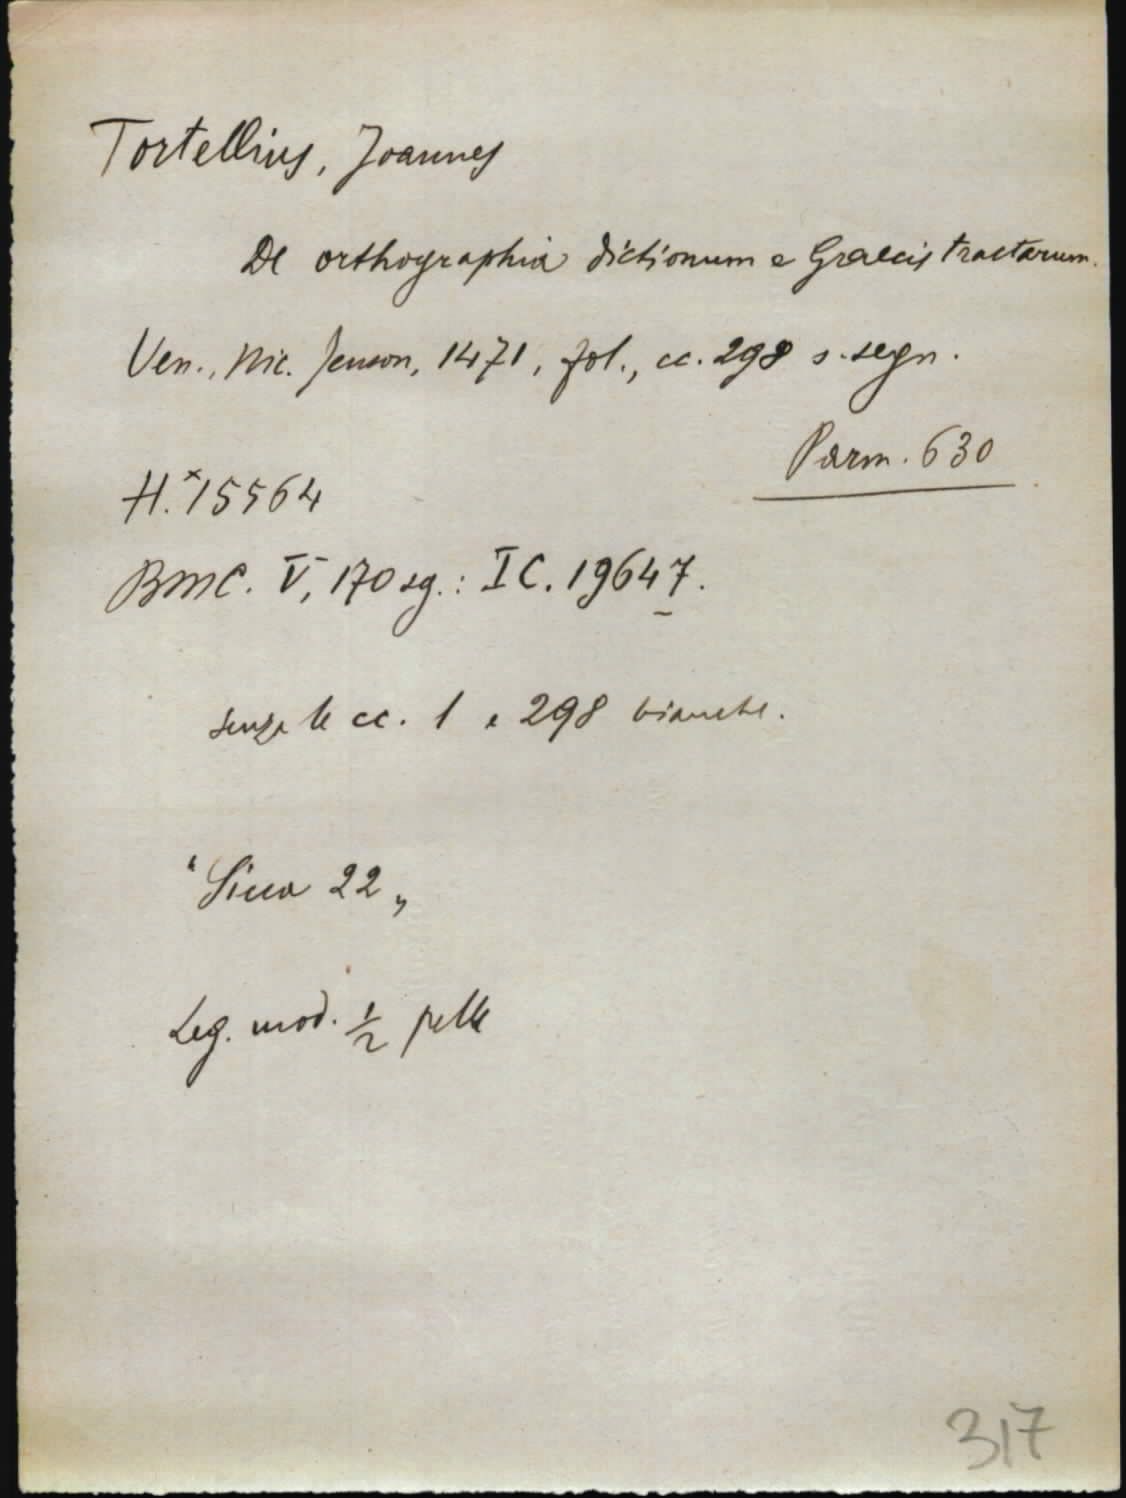 Tortellius, Joannes
De orthographia dictionum e Graecis tractarum.
Ven., Nic. Jenson, 1471, fol., cc. 298 s. segn.
Parm. 630
H.*15564
BMC. V, 170 sg.: IC. 19647.
senza le cc. 1 e 298 bianche.
"Sicca 22„
Leg. mod. 1/2 pelle
317